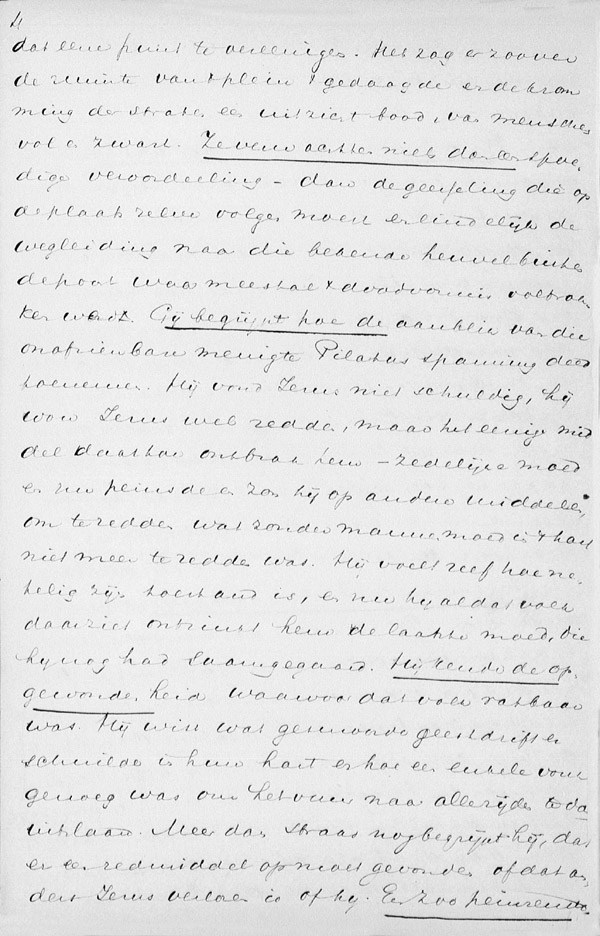 4
dat eene punt te vereenigen. Het zag er zoover
de ruimte van 't plein & gedaagde en de krom
ming der straten een uitzicht bood, van menschen
vol en zwart. Ze verwachten niets dan een spoe,
dige veroordeeling – dan de geeseling die op
de plaats zelve volgen moest en eindelijk de
wegleiding naar die bekende heuvel buiten
de poort waar meestal 't doodvonnis voltrok
ken werdt. Gij begrijpt hoe de aanblik van die
onafzienbare menigte Pilatus spanning deed
toenemen. Hij vond Jezus niet schuldig, hij
wou Jezus wel redden, maar het eenige mid
del daartoe ontbrak hem – zedelijke moed
en nu peinsde en zon hij op andere middelen,
om te redden wat zonder mannenmoed in 't hart
niet meer te redden was. Hij voelt zelf hoe ne,
telig zijn toestand is, en nu hij al dat volk
daar ziet ontzinkt hem de laatste moed, die
hij nog had saamgegaard. Hij kende de op,
gewondenheid waarvoor dat volk vatbaar
was. Hij wist wat gesmoorde geestdrift er
schuilde in hun hart en hoe een enkele vonk
genoeg was om het vuur naar alle zijden te do
uitslaan. Meer dan straks nog begrijpt hij, dat
er een redmiddel op moet gevonden of dat an,
ders Jezus verloren is of hij. En zoo peinzende